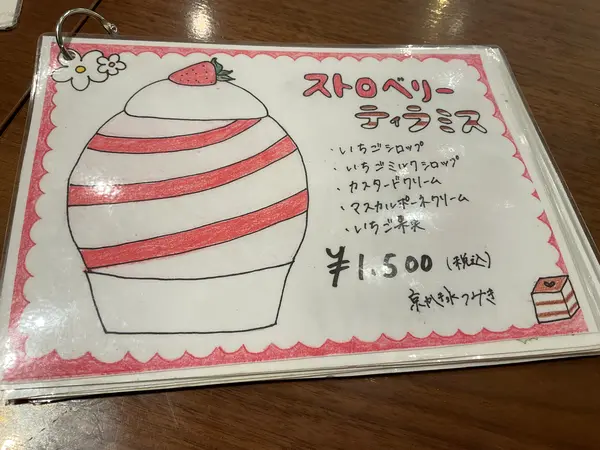 ストロベリー
ティラミス
・いちごシロップ
・いちごミルクシロップ
・カスタードクリーム
・マスカルポーネクリーム
・いちご果実
¥1,500 (税込)
京かき氷つみき